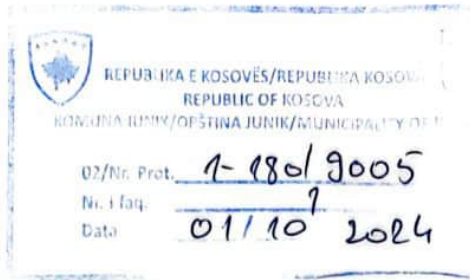 REPUBLIKA E KOSOVËS/REPUBLIKA KOSOV
REPUBLIC OF KOSOVA
KOMUNA JUNIK/OPŠTINA JUNIK/MUNICIPALITY OF
02/Nr. Prot. 1-180/9005
Nr. i faq. 1
Data 01/10 2024